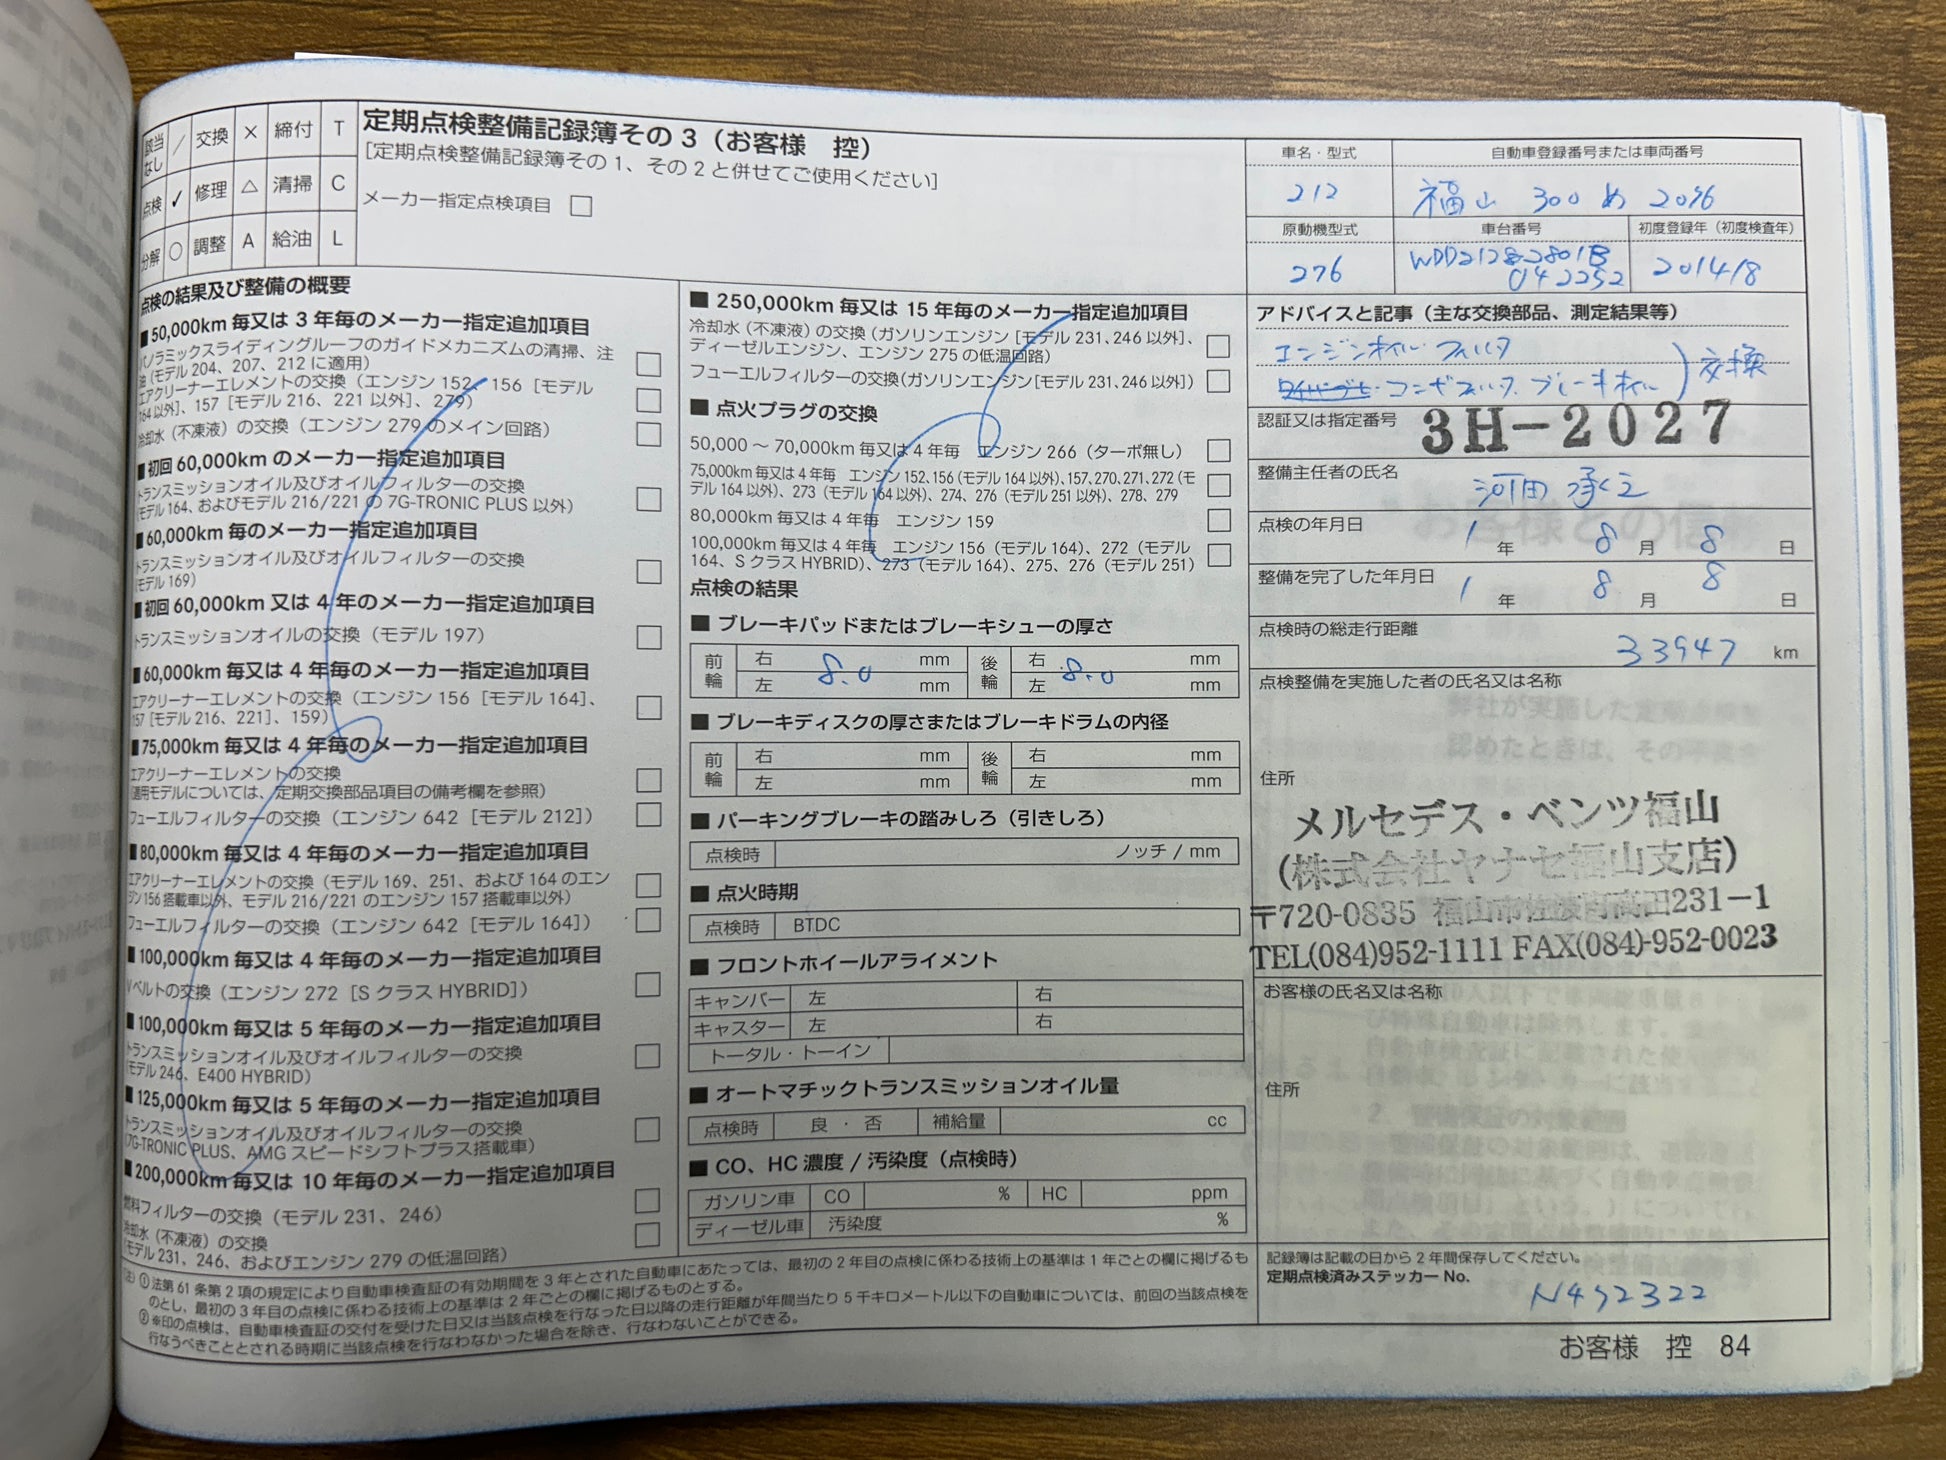 該当なし ／ 交換 × 締付 T
点検 ✓ 修理 △ 清掃 C
分解 ○ 調整 A 給油 L
定期点検整備記録簿その3（お客様　控）
［定期点検整備記録簿その1、その2と併せてご使用ください］
メーカー指定点検項目 □
車名・型式
212
自動車登録番号または車両番号
福山 300 め 2096
原動機型式
276
車台番号
WDD21282801B
042252
初度登録年（初度検査年）
2014/8
点検の結果及び整備の概要
■50,000km 毎又は 3 年毎のメーカー指定追加項目
パノラミックスライディングルーフのガイドメカニズムの清掃、注
油（モデル 204、207、212 に適用） □
エアクリーナーエレメントの交換（エンジン 152、156［モデル
164 以外］、157［モデル 216、221 以外］、279） □
冷却水（不凍液）の交換（エンジン 279 のメイン回路） □
■初回 60,000km のメーカー指定追加項目
トランスミッションオイル及びオイルフィルターの交換
（モデル 164、およびモデル 216/221 の 7G-TRONIC PLUS 以外） □
■60,000km 毎のメーカー指定追加項目
トランスミッションオイル及びオイルフィルターの交換
（モデル 169） □
■初回 60,000km 又は 4 年のメーカー指定追加項目
トランスミッションオイルの交換（モデル 197） □
■60,000km 毎又は 4 年毎のメーカー指定追加項目
エアクリーナーエレメントの交換（エンジン 156［モデル 164］、
157［モデル 216、221］、159） □
■75,000km 毎又は 4 年毎のメーカー指定追加項目
エアクリーナーエレメントの交換
（適用モデルについては、定期交換部品項目の備考欄を参照） □
フューエルフィルターの交換（エンジン 642［モデル 212］） □
■80,000km 毎又は 4 年毎のメーカー指定追加項目
エアクリーナーエレメントの交換（モデル 169、251、および 164 のエン
ジン156 搭載車以外、モデル 216/221 のエンジン 157 搭載車以外） □
フューエルフィルターの交換（エンジン 642［モデル 164］） □
■100,000km 毎又は 4 年毎のメーカー指定追加項目
Vベルトの交換（エンジン 272［S クラス HYBRID］） □
■100,000km 毎又は 5 年毎のメーカー指定追加項目
トランスミッションオイル及びオイルフィルターの交換
（モデル 246、E400 HYBRID） □
■125,000km 毎又は 5 年毎のメーカー指定追加項目
トランスミッションオイル及びオイルフィルターの交換
（7G-TRONIC PLUS、AMG スピードシフトプラス搭載車） □
■200,000km 毎又は 10 年毎のメーカー指定追加項目
燃料フィルターの交換（モデル 231、246） □
冷却水（不凍液）の交換
（モデル 231、246、およびエンジン 279 の低温回路） □
■ 250,000km 毎又は 15 年毎のメーカー指定追加項目
冷却水（不凍液）の交換（ガソリンエンジン［モデル 231、246 以外］、
ディーゼルエンジン、エンジン 275 の低温回路） □
フューエルフィルターの交換（ガソリンエンジン［モデル 231、246 以外］） □
■ 点火プラグの交換
50,000 ～ 70,000km 毎又は 4 年毎　エンジン 266（ターボ無し） □
75,000km 毎又は 4 年毎　エンジン 152、156（モデル 164 以外）、157、270、271、272（モ
デル 164 以外）、273（モデル 164 以外）、274、276（モデル 251 以外）、278、279 □
80,000km 毎又は 4 年毎　エンジン 159 □
100,000km 毎又は 4 年毎　エンジン 156（モデル 164）、272（モデル
164、S クラス HYBRID）、273（モデル 164）、275、276（モデル 251） □
点検の結果
■ ブレーキパッドまたはブレーキシューの厚さ
前輪 右 8.0 mm 後輪 右 8.0 mm
左 mm 左 mm
■ ブレーキディスクの厚さまたはブレーキドラムの内径
前輪 右 mm 後輪 右 mm
左 mm 左 mm
■ パーキングブレーキの踏みしろ（引きしろ）
点検時 ノッチ / mm
■ 点火時期
点検時 BTDC
■ フロントホイールアライメント
キャンバー 左 右
キャスター 左 右
トータル・トーイン
■ オートマチックトランスミッションオイル量
点検時 良 ・ 否 補給量 cc
■ CO、HC 濃度 / 汚染度（点検時）
ガソリン車 CO % HC ppm
ディーゼル車 汚染度 %
アドバイスと記事（主な交換部品、測定結果等）
エンジンオイル フィルタ
コンビフィルタ ブレーキオイル ）交換
認証又は指定番号 3H-2027
整備主任者の氏名
河田 承之
点検の年月日 1 年 8 月 8 日
整備を完了した年月日 1 年 8 月 8 日
点検時の総走行距離
33947 km
点検整備を実施した者の氏名又は名称
住所
メルセデス・ベンツ福山
（株式会社ヤナセ福山支店）
〒720-0835 福山市佐波町高田231－1
TEL(084)952-1111 FAX(084)-952-0023
お客様の氏名又は名称
住所
記録簿は記載の日から 2 年間保存してください。
定期点検済みステッカー No.
N492322
（注）①法第 61 条第 2 項の規定により自動車検査証の有効期間を 3 年とされた自動車にあたっては、最初の 2 年目の点検に係わる技術上の基準は 1 年ごとの欄に掲げるも
のとし、最初の 3 年目の点検に係わる技術上の基準は 2 年ごとの欄に掲げるものとする。
②※印の点検は、自動車検査証の交付を受けた日又は当該点検を行なった日以降の走行距離が年間当たり 5 千キロメートル以下の自動車については、前回の当該点検を
行なうべきこととされる時期に当該点検を行なわなかった場合を除き、行なわないことができる。
お客様　控　84